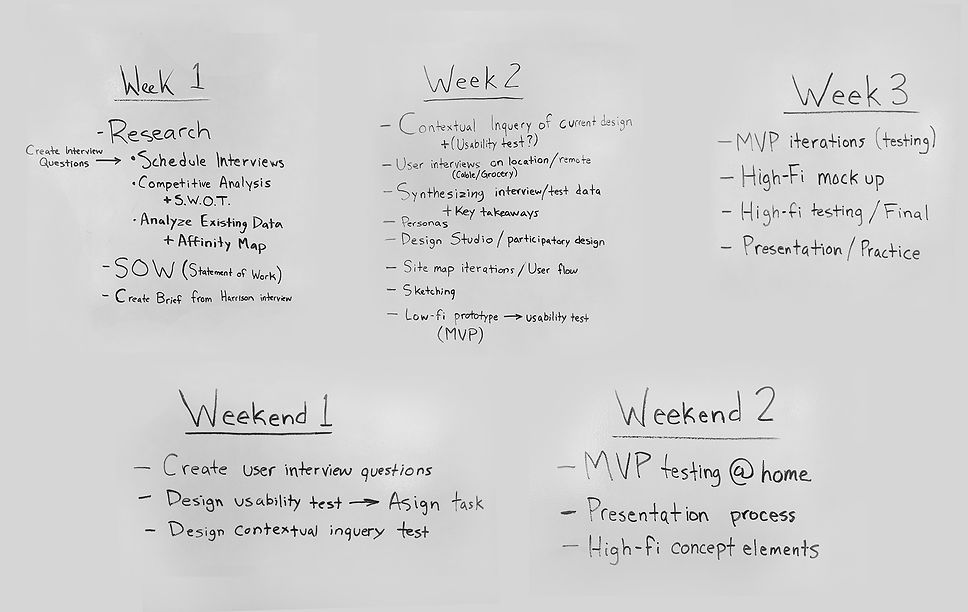 Week 1
- Research
Create Interview
Questions → • Schedule Interviews
• Competitive Analysis
+ S.W.O.T.
• Analyze Existing Data
+ Affinity Map
- SOW (Statement of Work)
- Create Brief from Harrison interview
Week 2
- Contextual Inquery of current design
+ (Usability test?)
- User interviews on location/remote
(Coble/Grocery)
- Synthesizing interview/test data
+ Key takeaways
- Personas
- Design Studio / participatory design
- Site map iterations / User flow
- Sketching
- Low-fi prototype → usability test
(MVP)
Week 3
- MVP iterations (testing)
- High-Fi mock up
- High-fi testing / Final
- Presentation / Practice
Weekend 1
- Create user interview questions
- Design usability test → Asign task
- Design contextual inquery test
Weekend 2
- MVP testing @ home
- Presentation process
- High-fi concept elements